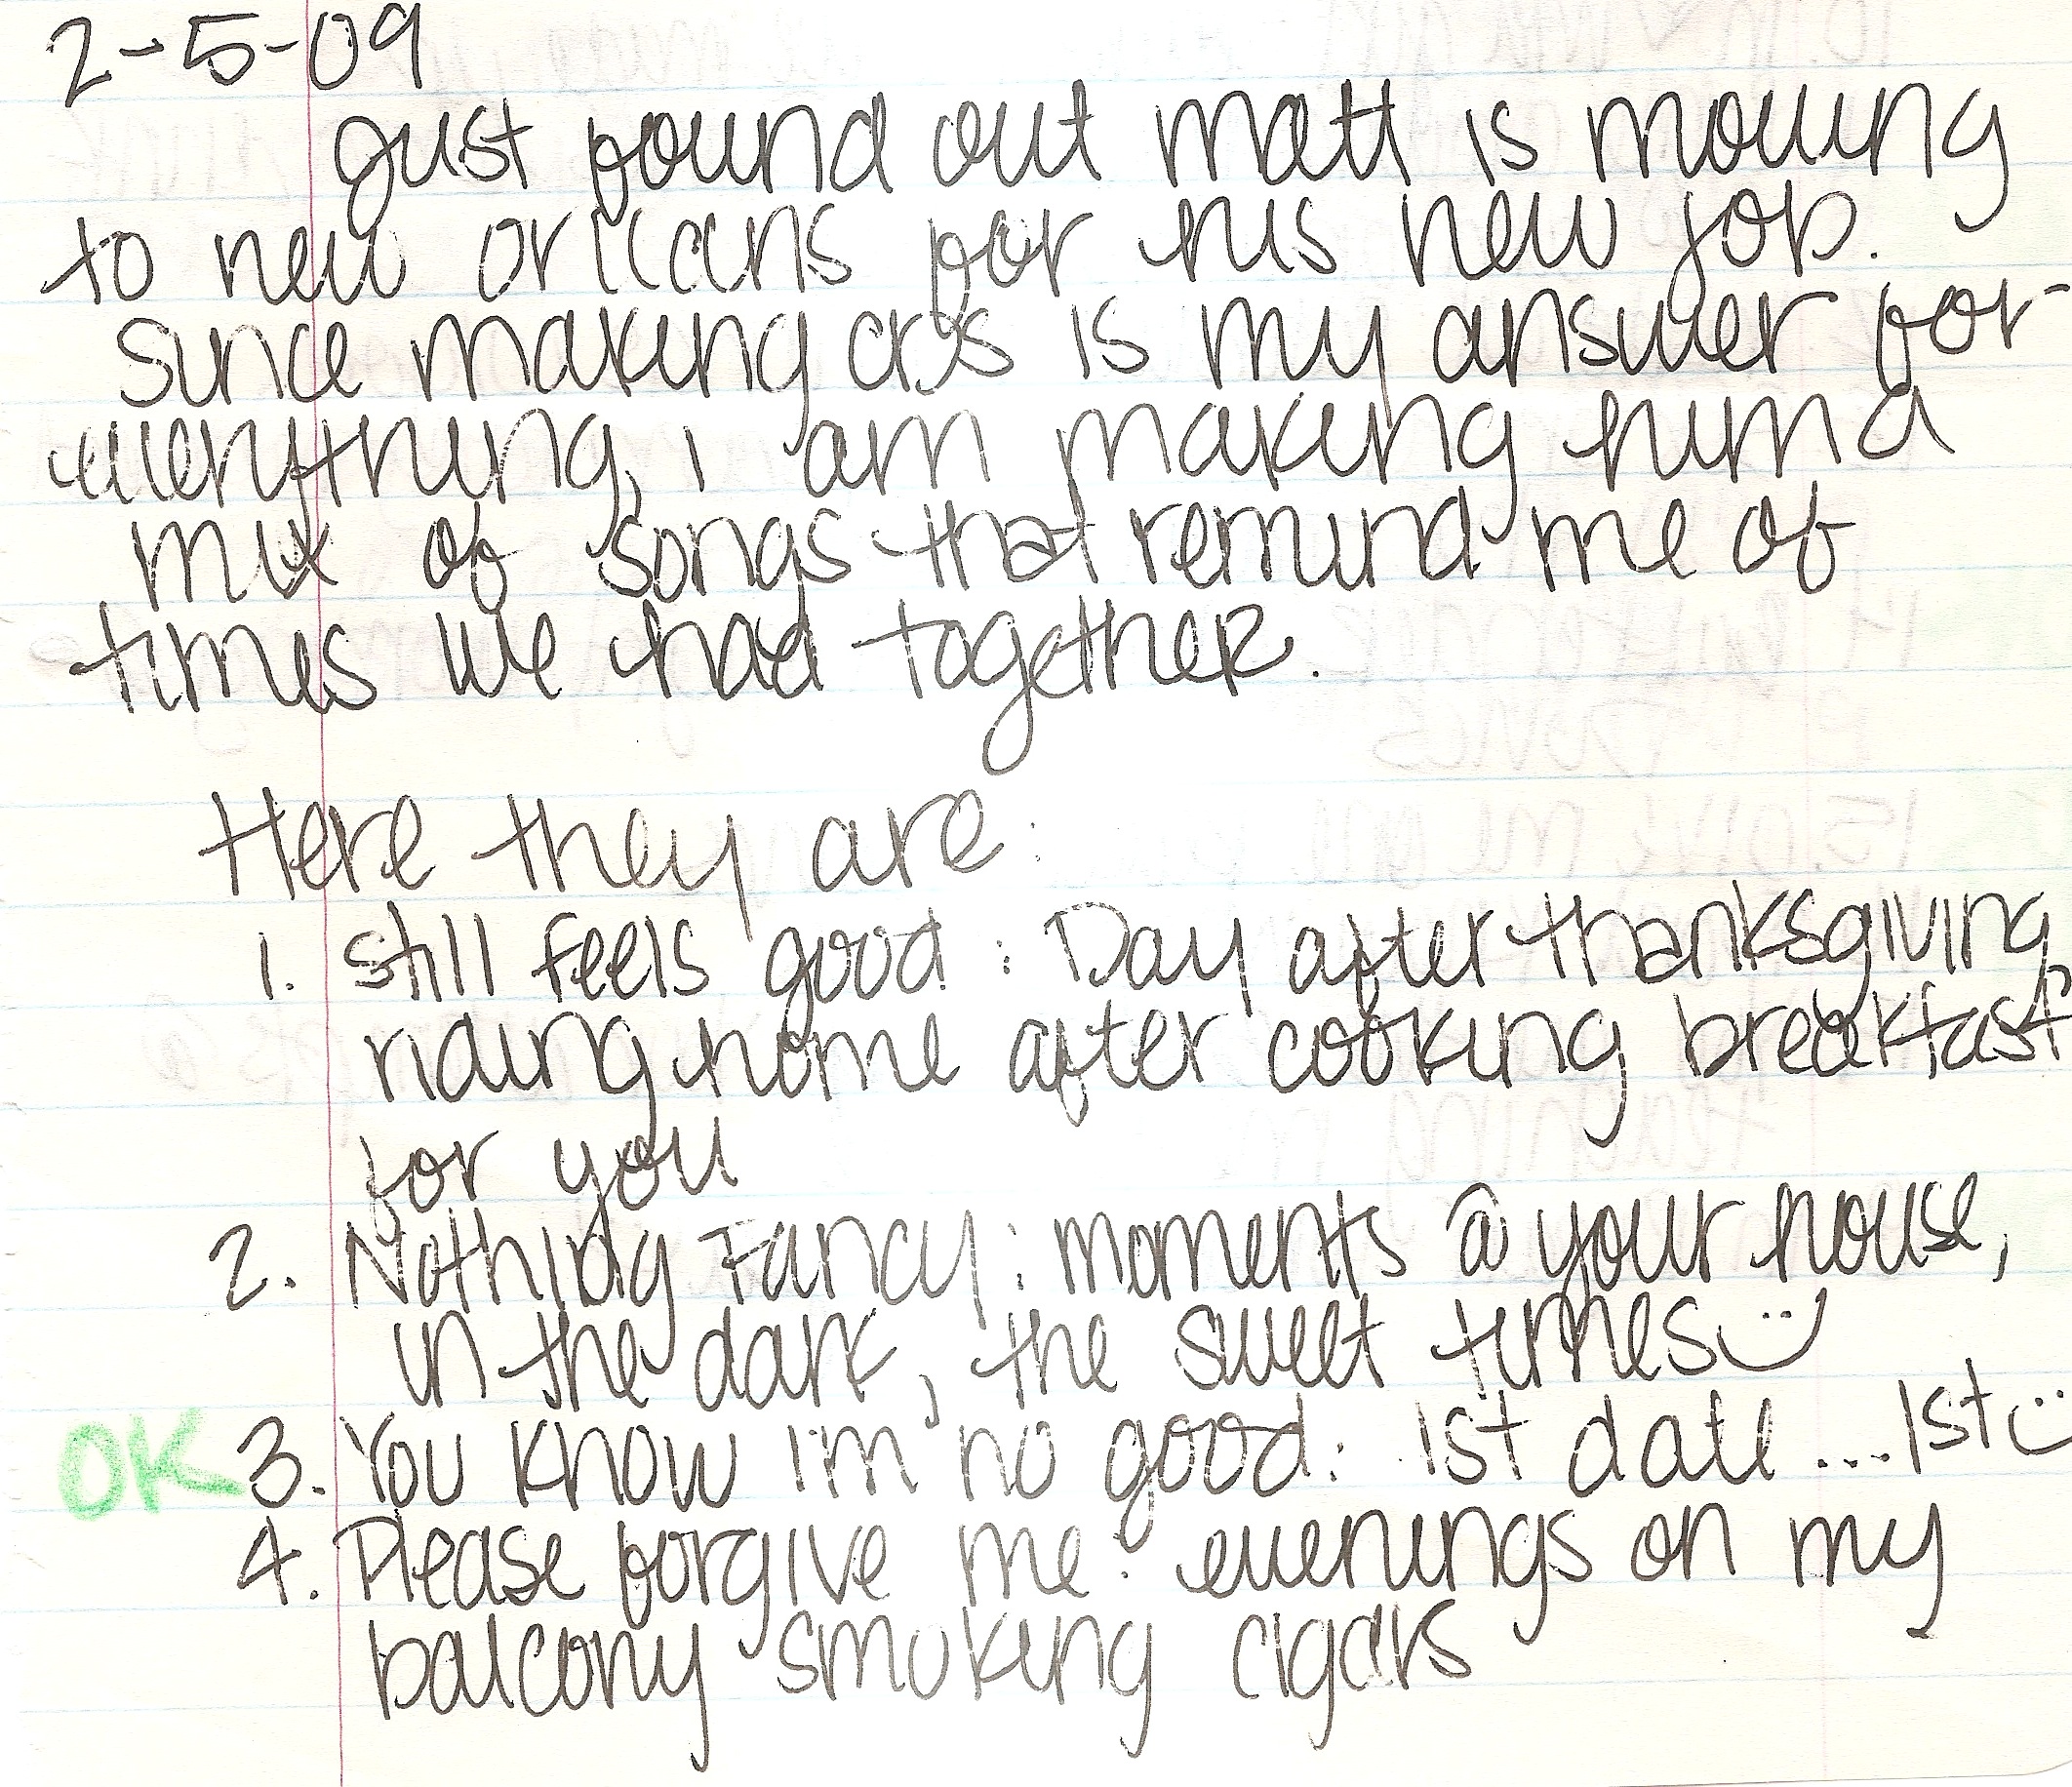 2-5-09
just found out matt is moving
to new orleans for his new job.
since making cd's is my answer for
everything, i am making him a
mix of songs that remind me of
times we had together.
Here they are:
1. still feels good: Day after thanksgiving,
riding home after cooking breakfast
for you
2. Nothing Fancy: moments @ your house,
in the dark, the sweet times :)
OK 3. You know i'm no good: 1st date...1st :)
4. Please forgive me: evenings on my
balcony smoking cigars